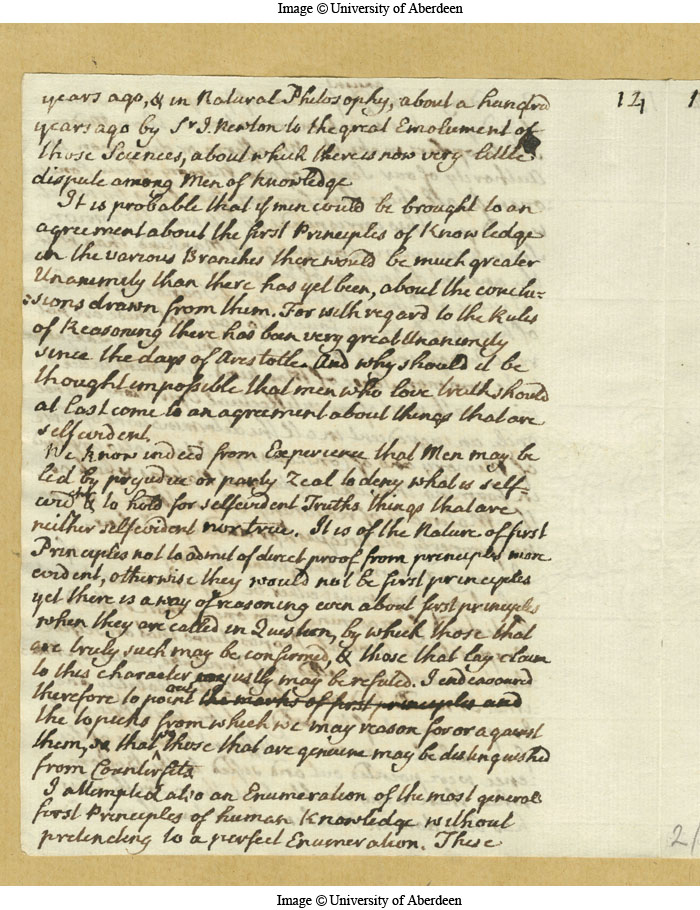 Image © University of Aberdeen
12
years ago, & in Natural Philosophy, about a hundred
years ago by Sr I. Newton to the great Emolument of
those Sciences, about which there is now very little
dispute among Men of Knowledge
It is probable that if men could be brought to an
agreement about the first Principles of Knowledge
in the various Branches there would be much greater
Unanimity than there has yet been, about the conclu-
sions drawn from them. For with regard to the Rules
of Reasoning there has been very great Unanimity
since the days of Aristotle. And why should it be
thought impossible that men who love truth should
at last come to an agreement about things that are
selfevident.
We know indeed from Experience that Men may be
led by prejudice or party Zeal to deny what is self-
evident & to hold for selfevident Truths things that are
neither selfevident nor true. It is of the Nature of first
Principles not to admit of direct proof from principles more
evident, otherwise they would not be first principles
yet there is a way of reasoning even about first principles
when they are called in Question, by which those that
are truly such may be confirmed, & those that lay claim
to this character justly may be refuted. I endeavoured
therefore to point out the marks of first principles and
the topicks from which we may reason for or against
them, that those that are genuine may be distinguished
from Counterfits
I attempted also an Enumeration of the most general
first Principles of human Knowledge without
pretending to a perfect Enumeration. These
2/
Image © University of Aberdeen